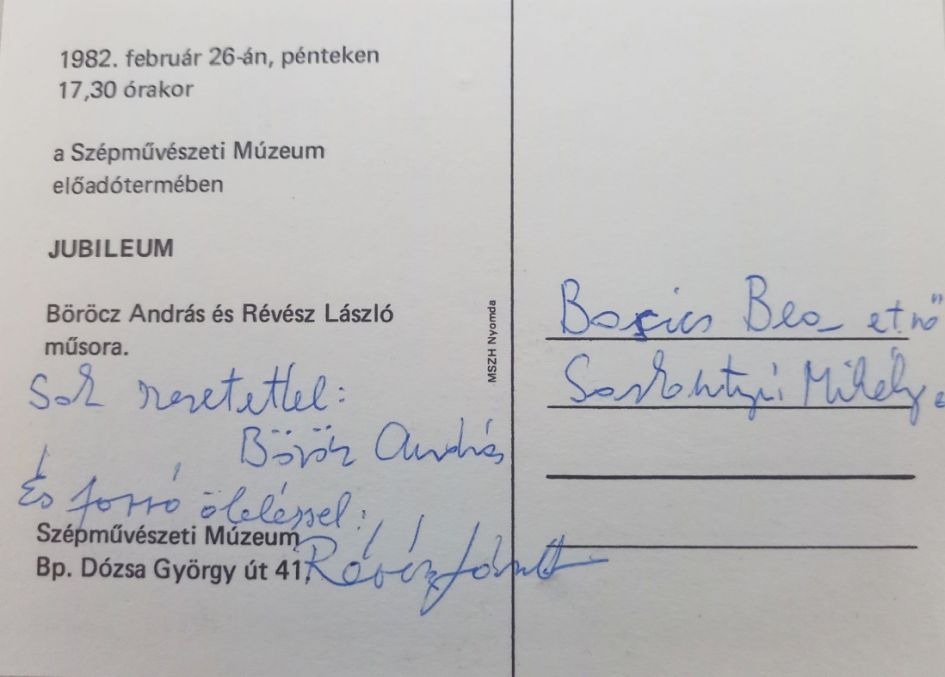 1982. február 26-án, pénteken
17,30 órakor
a Szépművészeti Múzeum
előadótermében
JUBILEUM
Böröcz András és Révész László
műsora.
Sok szeretettel:
Böröcz András
És forró öleléssel:
Szépművészeti Múzeum
Bp. Dózsa György út 41.
Révész
MSZH Nyomda
Bea
Mihály